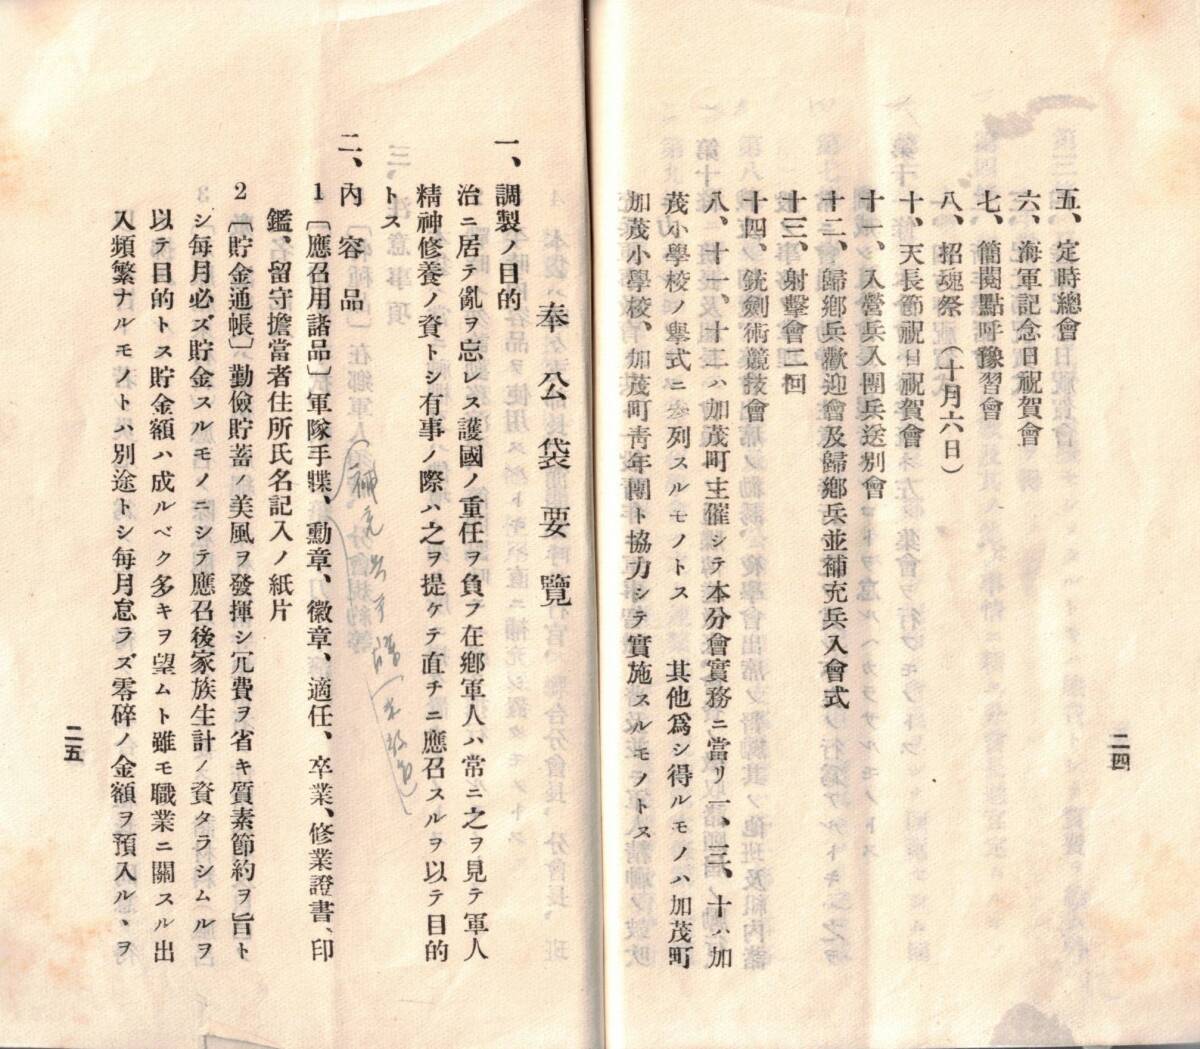 五、定時總會
六、海軍記念日祝賀會
七、簡閱點呼豫習會
八、招魂祭 (十月六日)
十、天長節祝日祝賀會
十一、入營兵入團兵送別會
十二、歸鄉兵歡迎會及歸鄉兵並補充兵入會式
十三、射擊會二回
十四、銃劍術競技會
八、十一、十二ハ加茂町主催シテ本分會實務ニ當リ一、三、十ハ加
茂小學校ノ擧式ニ參列スルモノトス 其他爲シ得ルモノハ加茂町
加茂小學校、加茂町靑年團ト協力シテ實施スルモノトス
二四
奉公袋要覽
一、調製ノ目的
治ニ居テ亂ヲ忘レス護國ノ重任ヲ負フ在鄉軍人ハ常ニ之ヲ見テ軍人
精神修養ノ資トシ有事ノ際ハ之ヲ提ケテ直チニ應召スルヲ以テ目的
トス
二、內容品
1 〔應召用諸品〕軍隊手牒、勳章、徽章、適任、卒業、修業證書、印
鑑、留守擔當者住所氏名記入ノ紙片
2 〔貯金通帳〕勤儉貯蓄ノ美風ヲ發揮シ冗費ヲ省キ質素節約ヲ旨ト
シ每月必ズ貯金スルモノニシテ應召後家族生計ノ資タラシムルヲ
以テ目的トス貯金額ハ成ルベク多キヲ望ムト雖モ職業ニ關スル出
入頻繁ナルモノトハ別途トシ每月怠ラズ零碎ノ金額ヲ預入ルヽヲ
二五